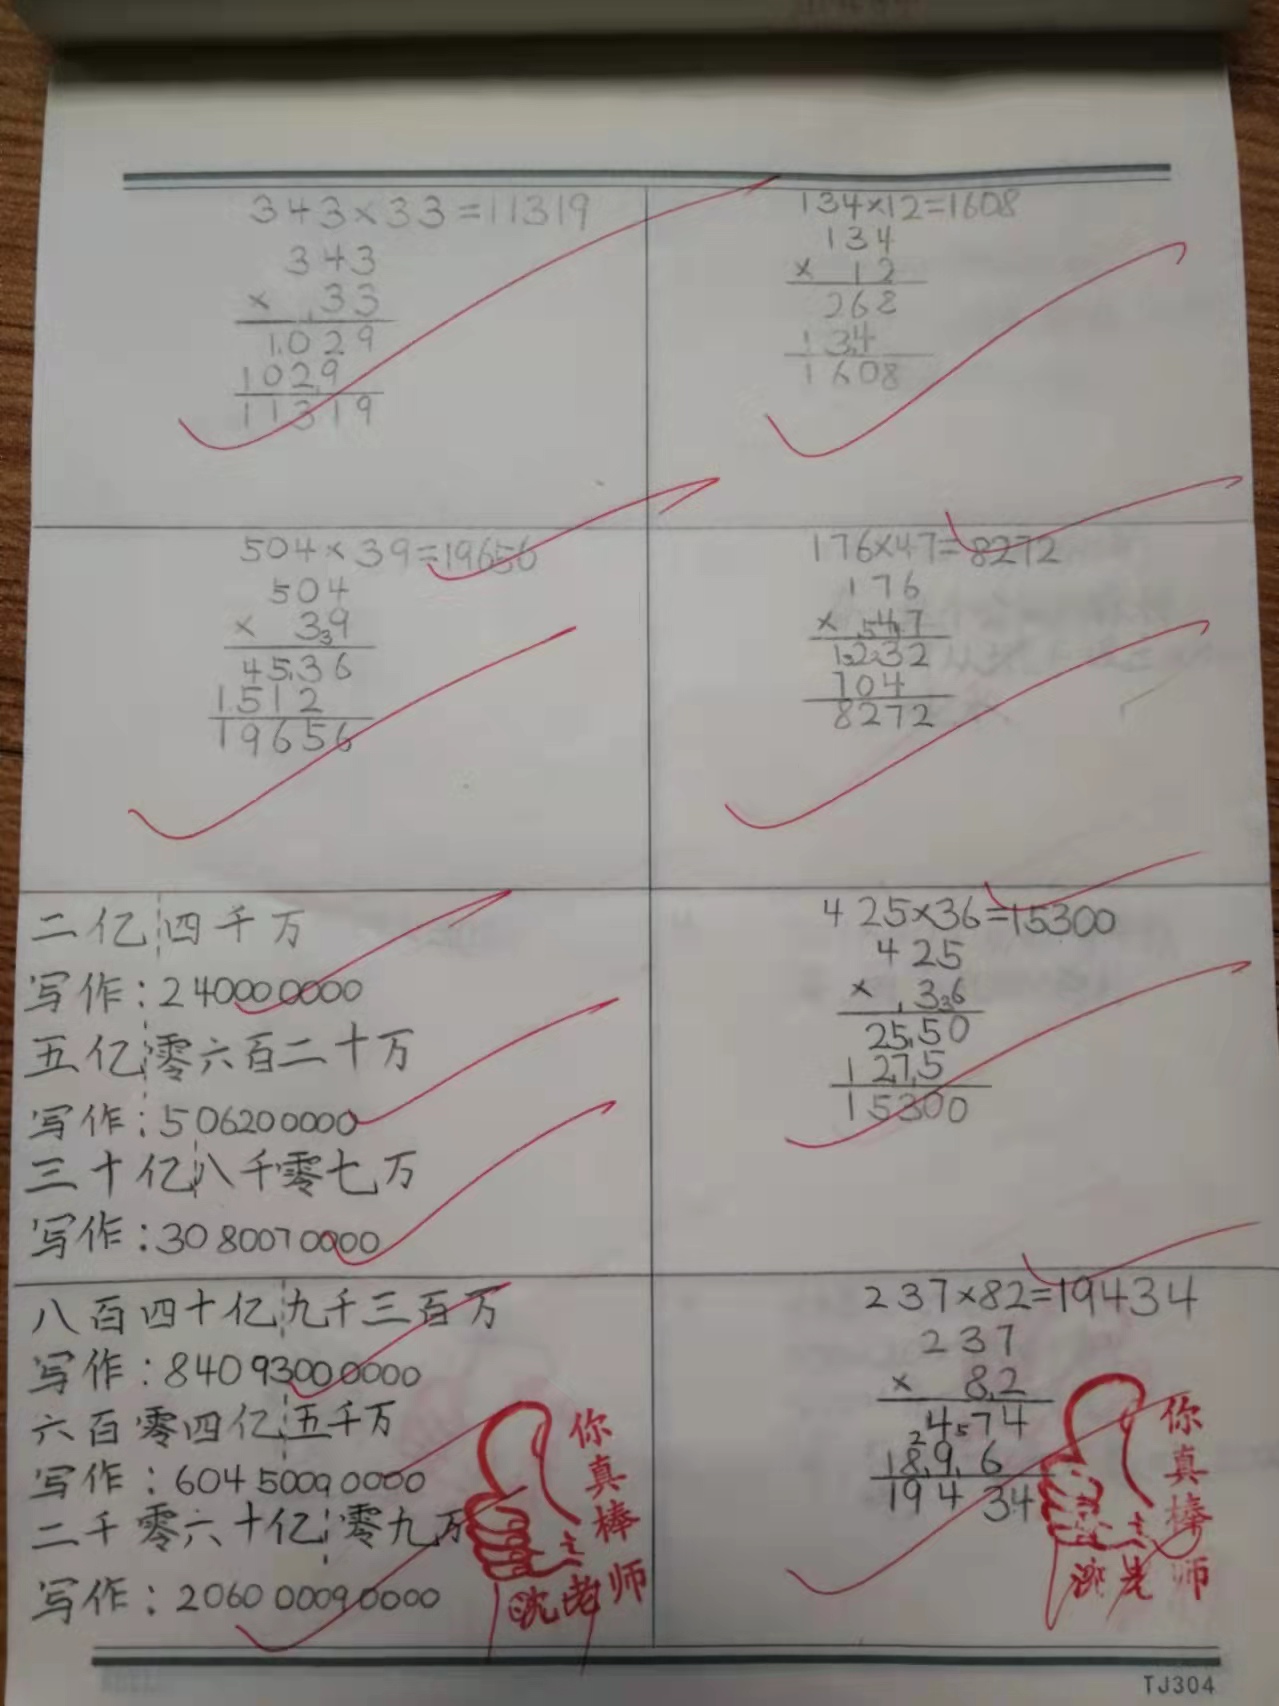 343×33=11319
343
× 33
1029
1029
11319
134×12=1608
134
× 12
268
134
1608
504×39=19656
504
× 39
4536
1512
19656
176×47=8272
176
× 47
1232
704
8272
二亿四千万
写作:240000000
五亿零六百二十万
写作:506200000
三十亿八千零七万
写作:3080070000
425×36=15300
425
× 36
2550
1275
15300
八百四十亿九千三百万
写作:84093000000
六百零四亿五千万
写作:60450000000
二千零六十亿零九万
写作:206000090000
你真棒
沈老师
237×82=19434
237
× 82
474
1896
19434
你真棒
沈老师
TJ304